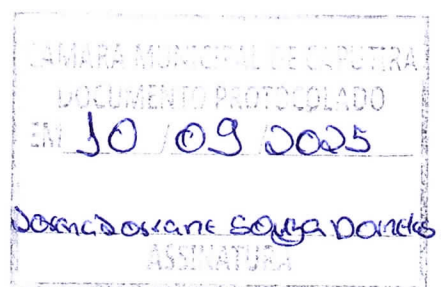 CÂMARA MUNICIPAL DE CAPUTIRA
DOCUMENTO PROTOCOLADO
EM 10 / 09 2025
Souza
ASSINATURA